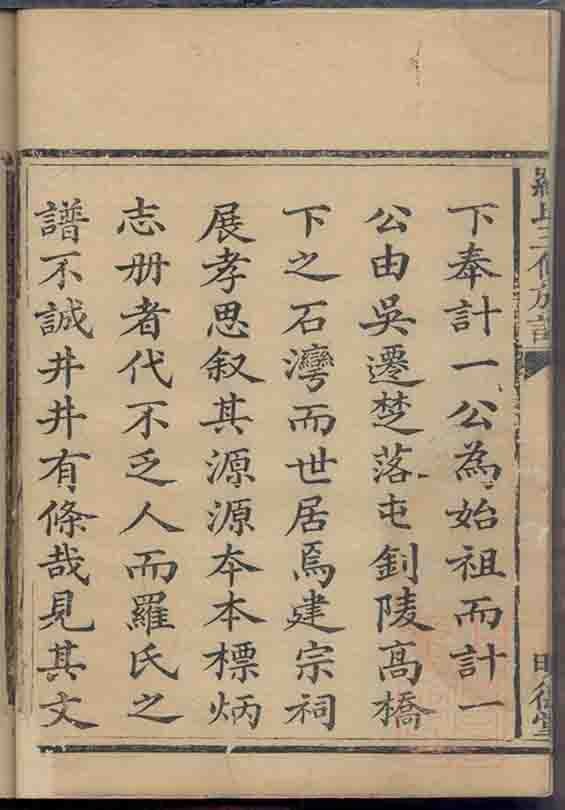 下奉計一公為始祖而計一
公由吳遷楚落屯釗陵高橋
下之石灣而世居焉建宗祠
展孝思叙其源源本本標炳
志册者代不乏人而羅氏之
譜不誠井井有條哉見其文
羅氏三修族譜